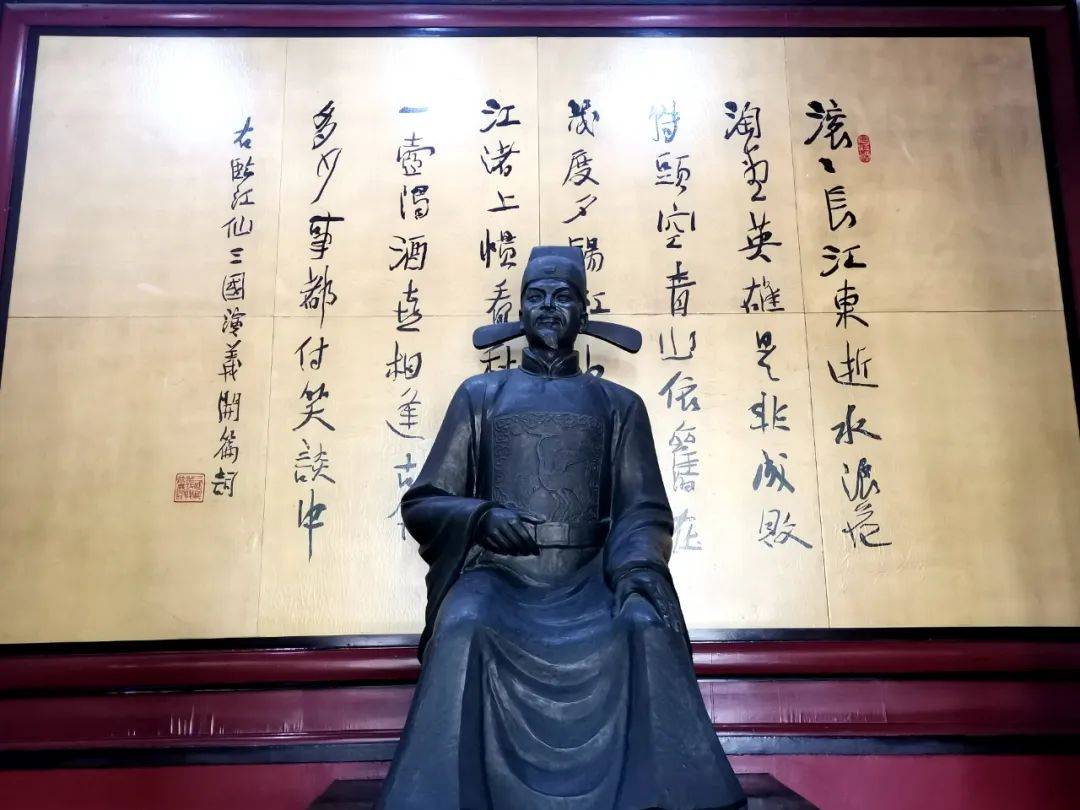 滚〻長江東逝水浪花
淘盡英雄是非成敗
轉頭空青山依舊在
幾度夕陽紅
江渚上慣看秋
一壺濁酒喜相逢古
多少事都付笑談中
右臨江仙三國演義開篇詞